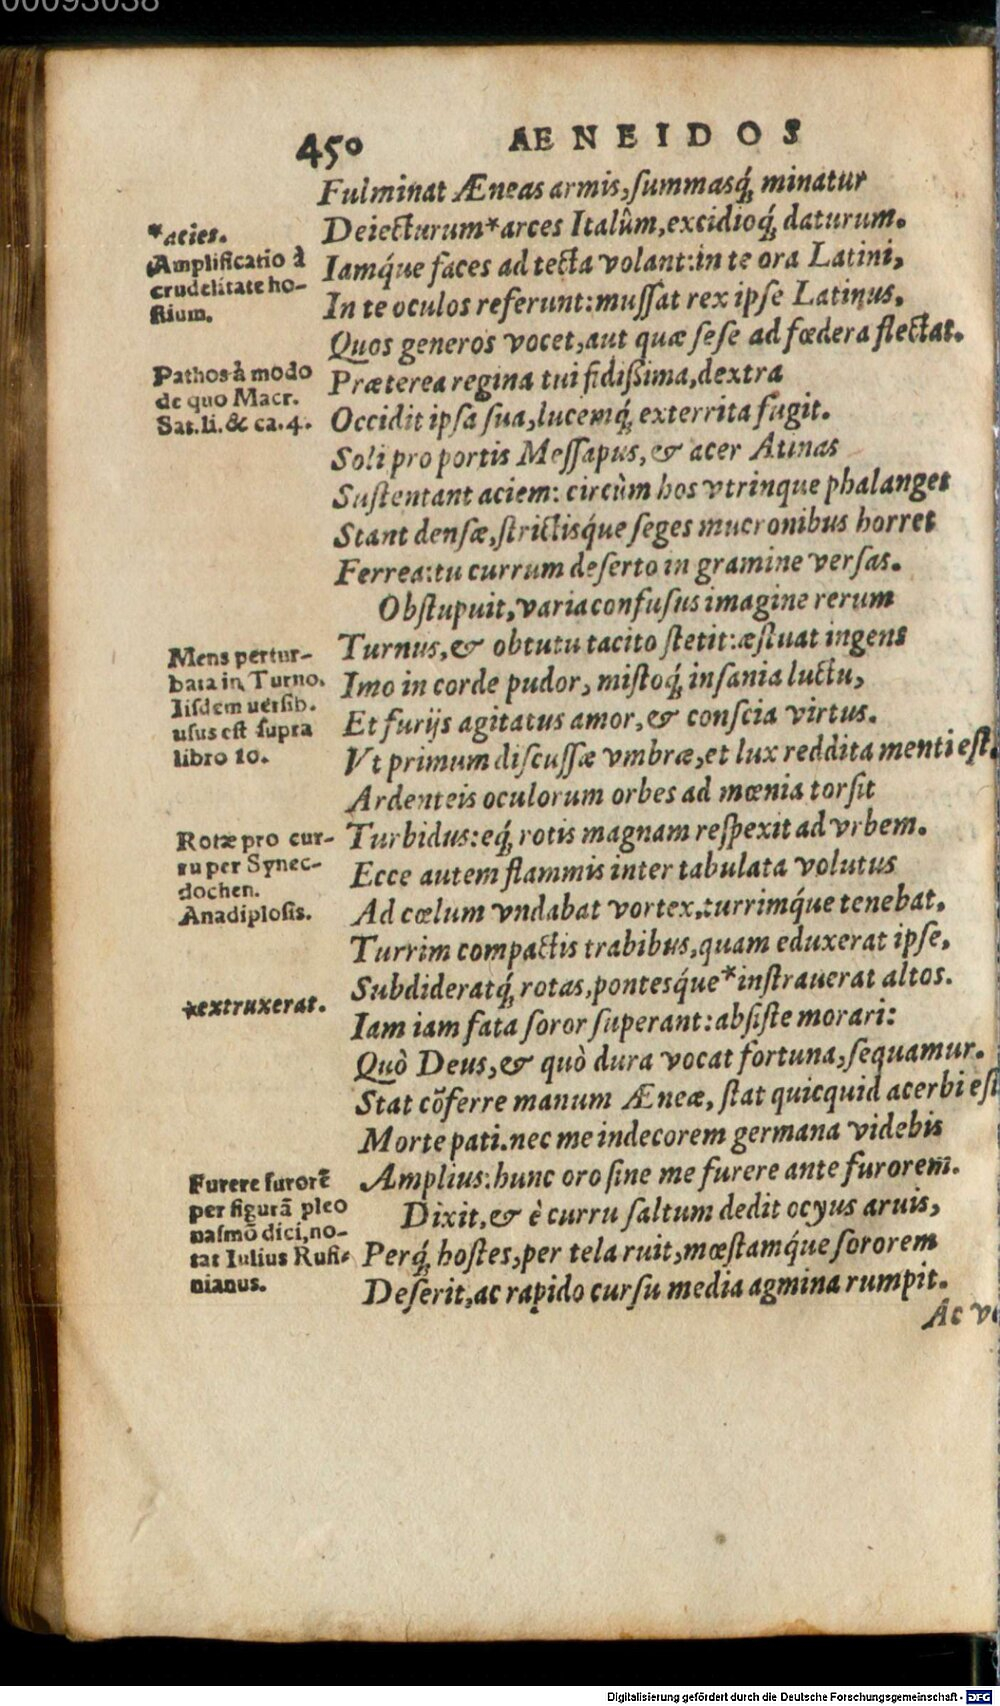 00093038
450 AENEIDOS
Fulminat Æneas armis, summasq́; minatur
Deiecturum*arces Italûm, excidioq́; daturum.
Iamq́ue faces ad tecta volant: in te ora Latini,
In te oculos referunt: mussat rex ipse Latinus,
Quos generos vocet, aut quæ sese ad fœdera flectat.
Præterea regina tui fidissima, dextra
Occidit ipsa sua, lucemq́; exterrita fugit.
Soli pro portis Messapus, & acer Atinas
Sustentant aciem: circùm hos vtrinque phalanges
Stant densæ, strictisq́ue seges mucronibus horret
Ferrea: tu currum deserto in gramine versas.
Obstupuit, varia confusus imagine rerum
Turnus, & obtutu tacito stetit: æstuat ingens
Imo in corde pudor, mistoq́; insania luctu,
Et furijs agitatus amor, & conscia virtus.
Vt primum discussæ vmbræ, et lux reddita menti est,
Ardenteis oculorum orbes ad mœnia torsit
Turbidus: eq́; rotis magnam respexit ad vrbem.
Ecce autem flammis inter tabulata volutus
Ad cœlum vndabat vortex, turrimq́ue tenebat,
Turrim compactis trabibus, quam eduxerat ipse,
Subdideratq́; rotas, pontesq́ue*instrauerat altos.
Iam iam fata soror superant: absiste morari:
Quò Deus, & quò dura vocat fortuna, sequamur.
Stat cõferre manum Æneæ, stat quicquid acerbi est
Morte pati. nec me indecorem germana videbis
Amplius: hunc oro sine me furere ante furorem.
Dixit, & è curru saltum dedit ocyus aruis,
Perq́; hostes, per tela ruit, mœstamq́ue sororem
Deserit, ac rapido cursu media agmina rumpit.
Ac
*acies.
Amplificatio à
crudelitate ho-
stium.
Pathos à modo
de quo Macr.
Sat. li. & ca. 4.
Mens pertur-
bata in Turno.
Iisdem uersib.
usus est supra
libro 10.
Rotæ pro cur-
ru per Synec-
dochen.
Anadiplosis.
*extruxerat.
Furere furorẽ
per figurã pleo
nasmõ dici, no-
tat Iulius Rufi-
nianus.
Digitalisierung gefördert durch die Deutsche Forschungsgemeinschaft - DFG